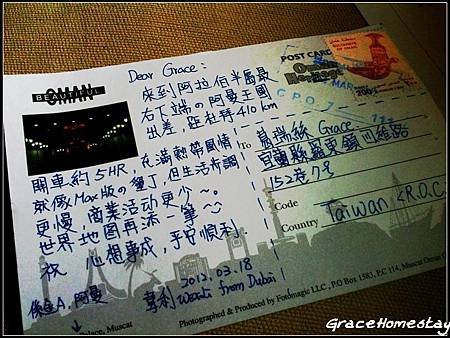 BEAUTIFUL
OMAN
Dear Grace:
來到阿拉伯半島最
右下端の阿曼王國
出差,距杜拜410 km
開車約5HR,充滿熱帶風情
就像Max版の墾丁,但生活步調
更慢,商業活動更少~。
世界地圖再添一筆~
祝 心想事成,平安順利
2012.03.18
亨利 Wents from Dubai
POST CARD
Oman
Heritage
200
MAR
G.P.O.
To 葛瑞絲 Grace
宜蘭縣羅東鎮
152巷7号
Code
Country Taiwan <R.O.C>
Palace, Muscat
Photographed & Produced by Fotomagic LLC., P.O Box 1583, P.C 114, Muscat Oman
GraceHomestay